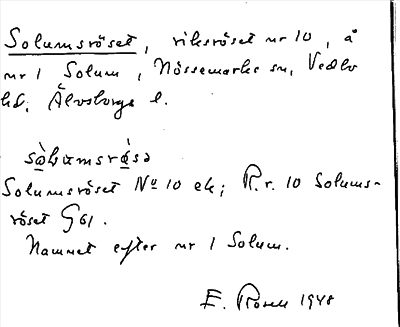 Solumsröset, riksröset nr 10, å
nr 1 Solum, Nössemarks sn, Vedbo
hd, Älvsborgs l.
Solumsröset No 10 ek; R.r. 10 Solums-
röset G 61.
Namnet efter nr 1 Solum.
E. Rosell 1948